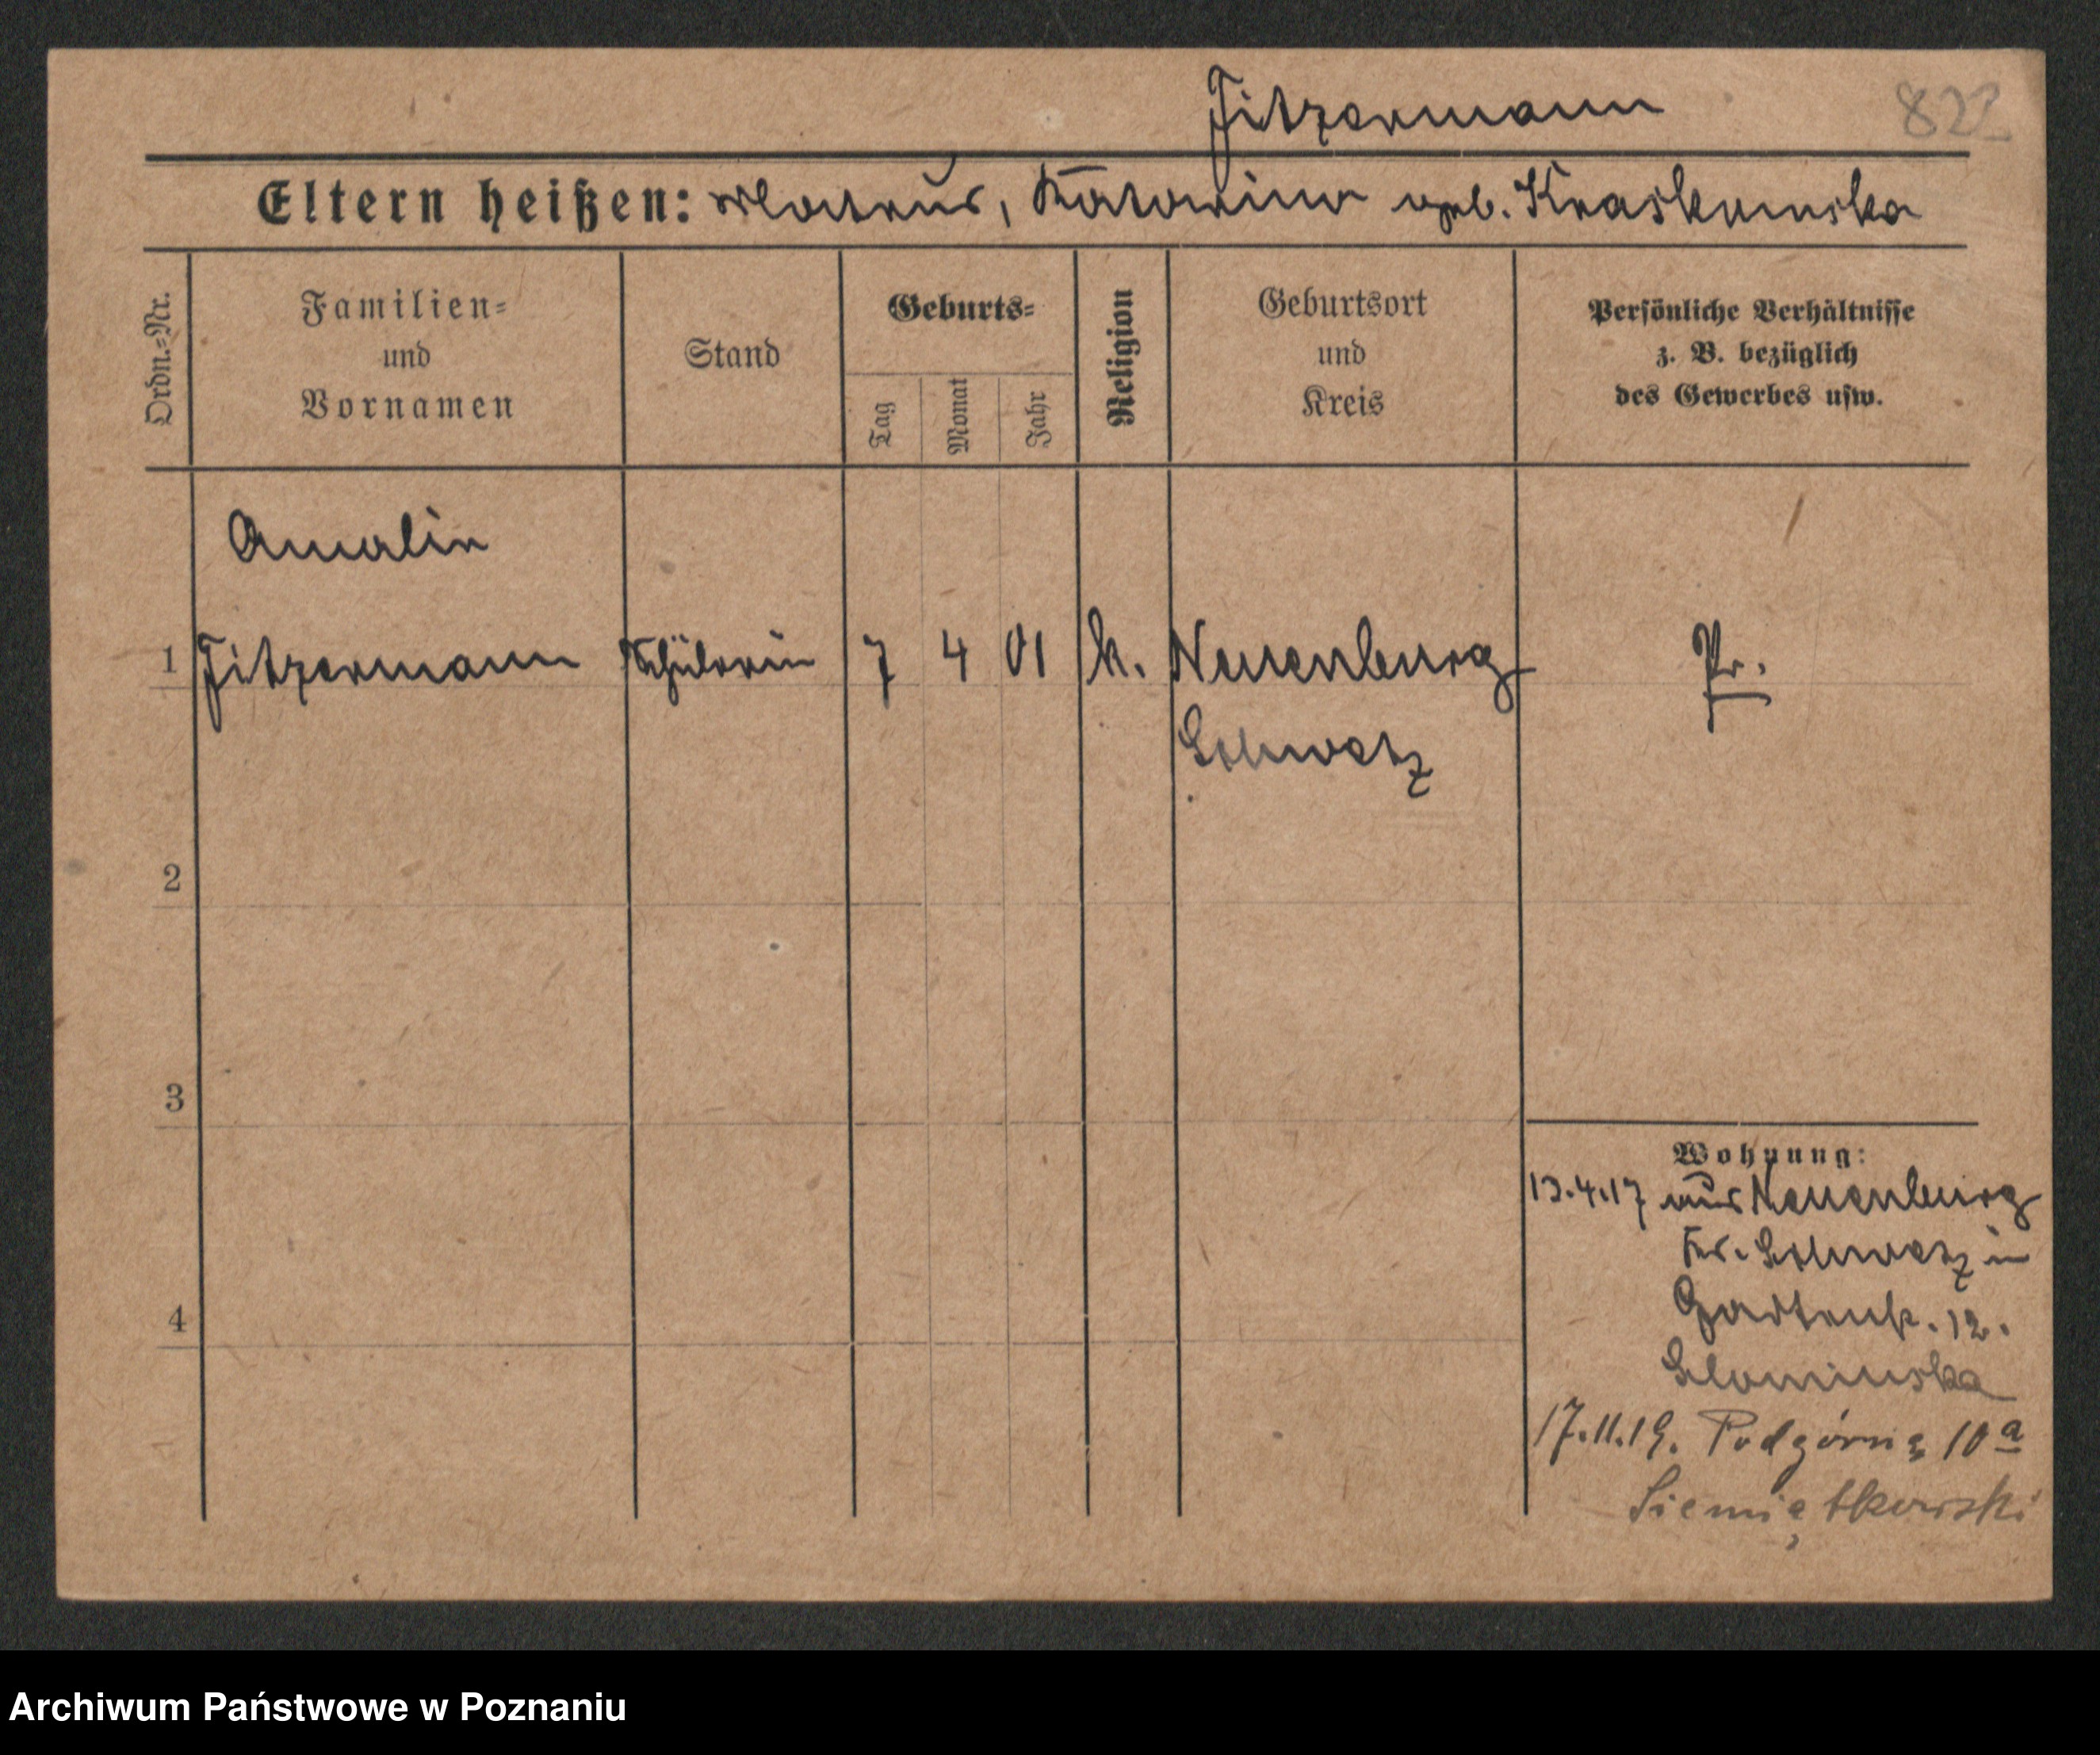 Fitzermann 822
Eltern heißen: Mateus, Katarina geb. Kraskowska
Ordn.-Nr.
Familien-
und
Vornamen
Stand
Geburts-
Tag
Monat
Jahr
Religion
Geburtsort
und
Kreis
Persönliche Verhältnisse
z. B. bezüglich
des Gewerbes usw.
Amalie
1 Fitzermann Schülerin 7 4 01 k. Neuenburg Pr.
Schwetz
2
3
4
Wohnung:
13.4.17 aus Neuenburg
Kr. Schwetz in
Gartenstr. 12.
Slominska
17.11.19. Podgórna 10a
Siemiątkowski
Archiwum Państwowe w Poznaniu